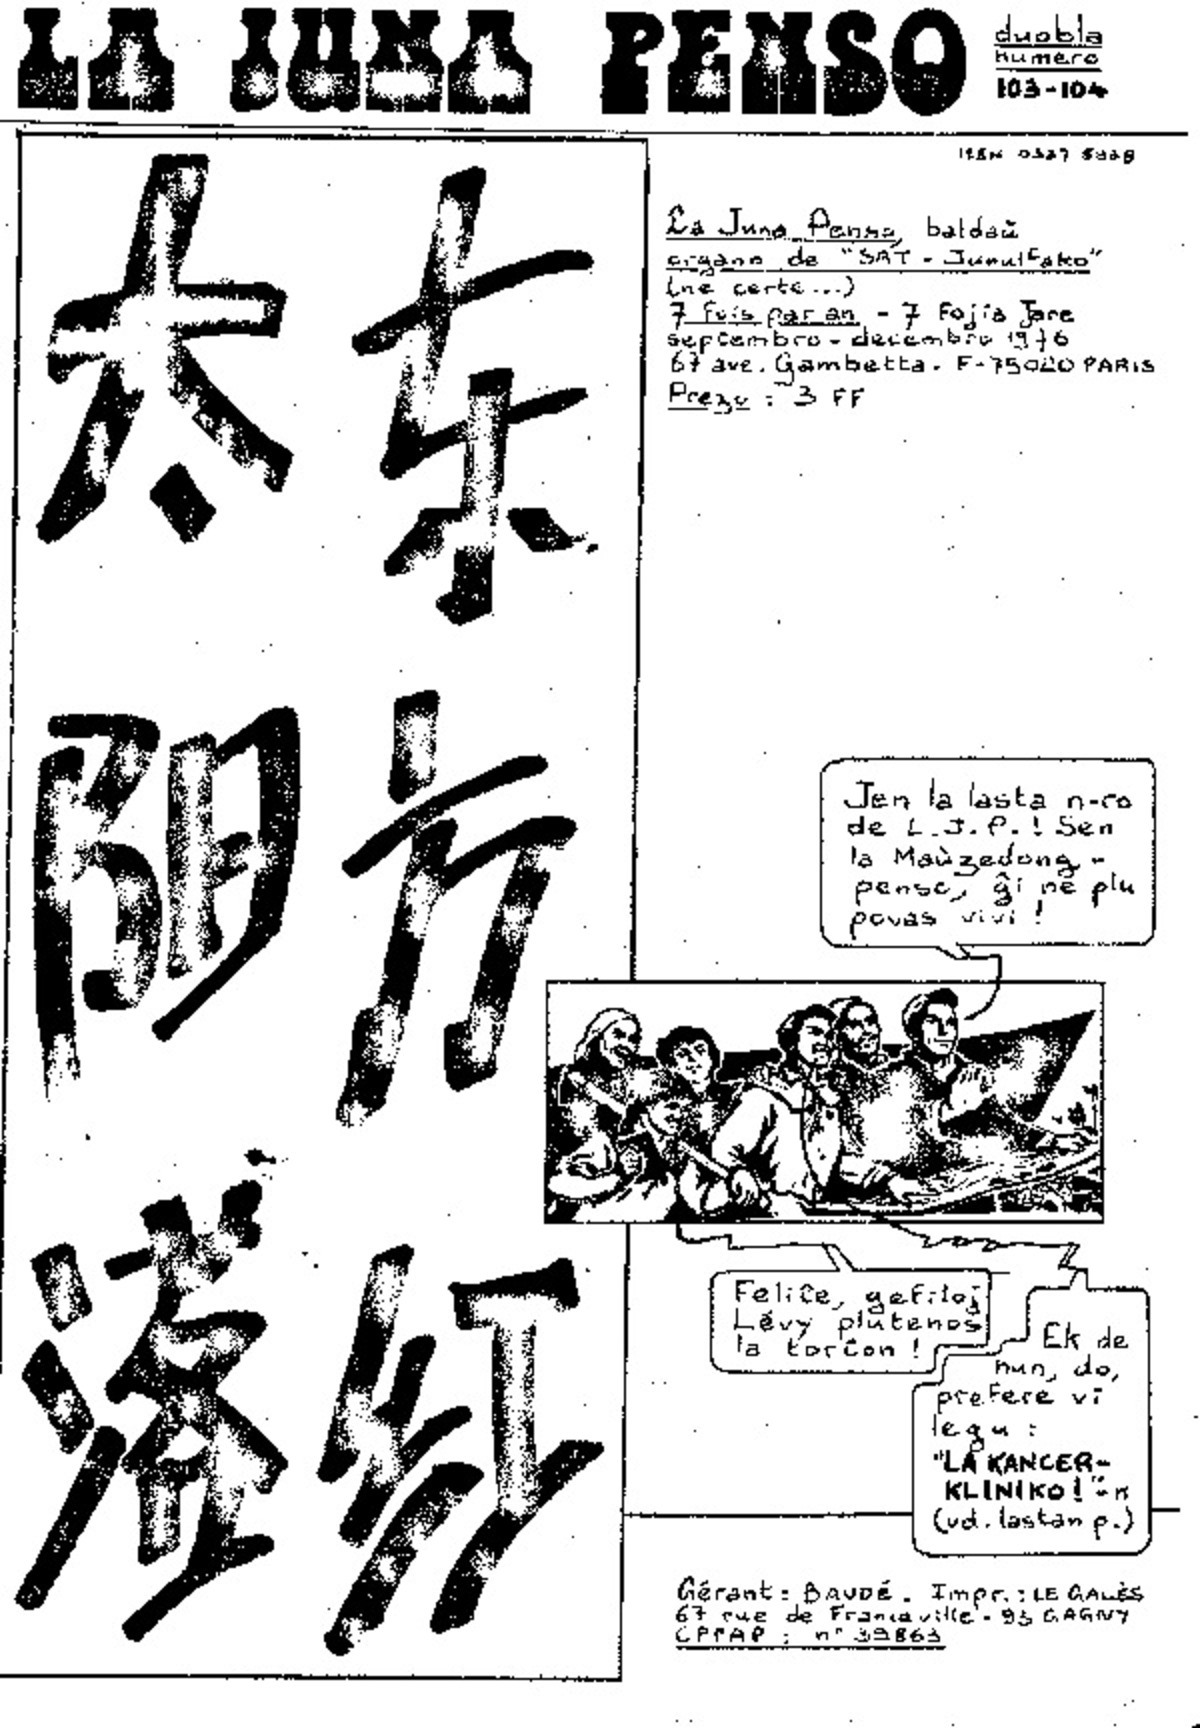 LA JUNA PENSO
duobla
numero
103-104
东方红
太阳
La Juna Penso, baldaŭ
organo de "SAT-Junulfako"
(ne certe...)
7 fois par an - 7 Fojĩa Jare
septembro - decembro 1976
67 ave. Gambetta. F-75020 PARIS
Prezo : 3 FF
Jen la lasta n-ro
de L.J.P.! Sen
la Maŭzedong-
penso, ĝi ne plu
povas vivi!
Feliĉe, gefiloj
Lévy plutenos
la torĉon!
Ek de
nun, do,
prefere vi
legu :
"LA KANCER-
KLINIKO!"-n
(vd. lastan p.)
Gérant : BAUDÉ. Impr. : LE GALÈS
67 rue de Franceville - 93 GAGNY
CPPAP : n° 39863